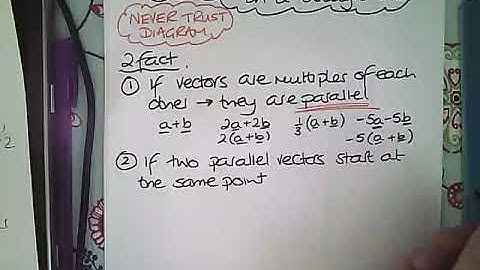 on a
NEVER TRUST
DIAGRAM
2 fact.
① If vectors are multiples of each
other → they are parallel
a+b 2a+2b 1/3(a+b) -5a-5b
2(a+b) -5(a+b)
② If two parallel vectors start at
the same point